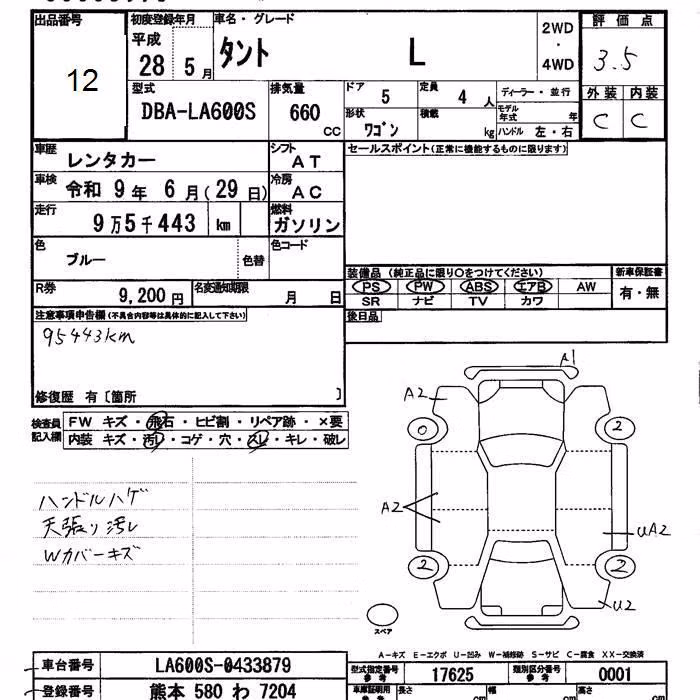 出品番号 初度登録年月 車名・グレード 2WD・4WD 評価点
12 平成 28 5月 タント L 3.5
型式 排気量 ドア 5 定員 4 人 ディーラー・並行 外装 内装
DBA-LA600S 660 CC 形状 ワゴン 積載 kg モデル年式 年 C C
ハンドル 左・右
車歴 レンタカー シフト AT セールスポイント(正常に機能するものに限ります)
車検 令和 9年 6月(29日) 冷房 AC
走行 9万5千443 km 燃料 ガソリン
色 ブルー 色替 色コード
装備品(純正品に限り○をつけてください) 新車保証書
R券 9,200円 名変通知期限 月 日 PS PW ABS エアB AW 有・無
SR ナビ TV カワ
注意事項申告欄(不具合内容等は具体的に記入して下さい) 後日品
95443km
修復歴 有〔箇所 〕
検査員記入欄 FW キズ・飛石・ヒビ割・リペア跡・×要
内装 キズ・汚れ・コゲ・穴・スレ・キレ・破レ
A1
A2
0 2
ハンドルハゲ
天張り汚レ
Wカバーキズ
A2
UA2
2 2
U2
スペア
A-キズ E-エクボ U-凹み W-補修跡 S-サビ C-腐食 XX-交換済
車台番号 LA600S-0433879 型式指定番号 参考 17625 類別区分番号 参考 0001
登録番号 熊本 580 わ 7204 車庫証明用 参考 長さ cm 幅 cm 高さ cm